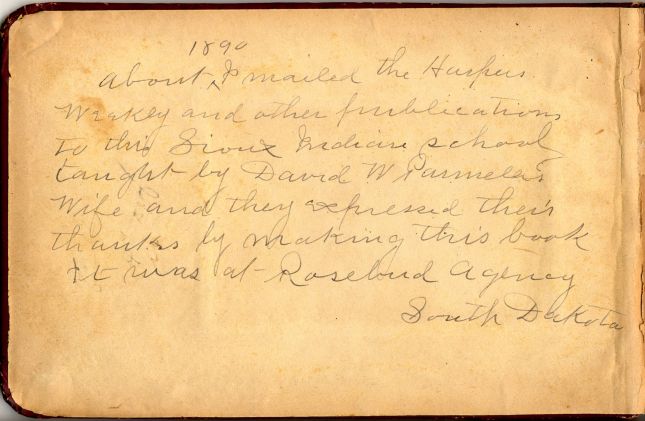 1890
About ^ I mailed the Harpers
Weekly and other publications
to this Sioux Indian school
taught by David W Parmelee's
Wife and they expressed their
thanks by making this book
It was at Rosebud Agency
South Dakota